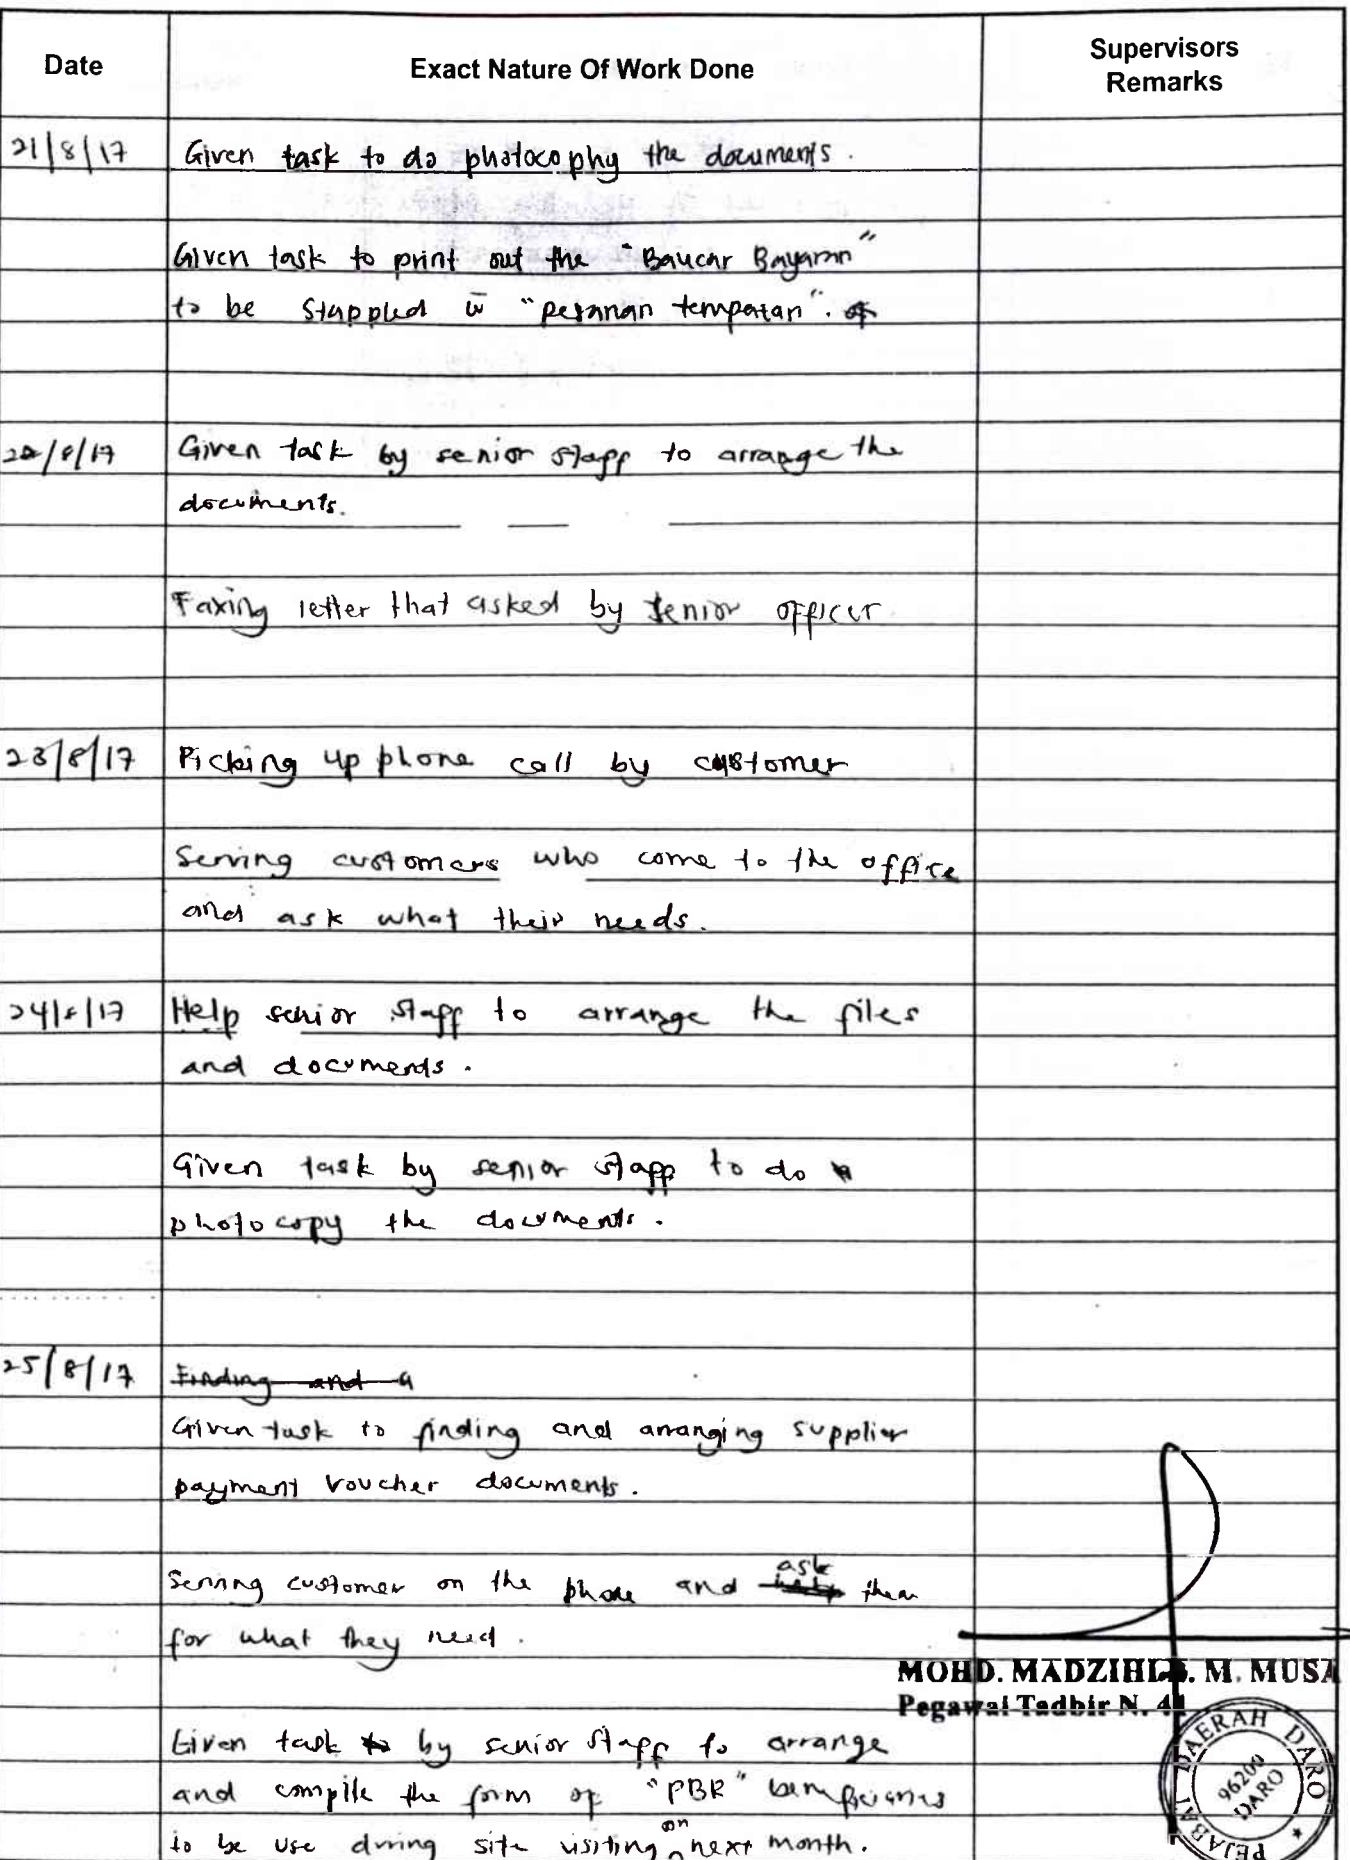 Date Exact Nature Of Work Done Supervisors Remarks
21/8/17 Given task to do photocophy the documents.
Given task to print out the "Baucar Bayaran"
to be stappled w "pesanan tempatan".
22/8/17 Given task by senior staff to arrange the
documents.
Faxing letter that asked by senior officer
23/8/17 Picking up phone call by customer
Serving customers who come to the office
and ask what their needs.
24/8/17 Help senior staff to arrange the files
and documents.
Given task by senior staff to do
photocopy the documents.
25/8/17 Finding and a
Given task to finding and arranging supplier
payment voucher documents.
Serving customer on the phone and ask them
for what they need.
MOHD. MADZIHI B. M. MUSA
Pegawai Tadbir N. 41
Given task by senior staff to arrange
and compile the form of "PBR" beneficiaries
to be use during site visiting on next month.
PEJABAT DAERAH DARO
96200
DARO